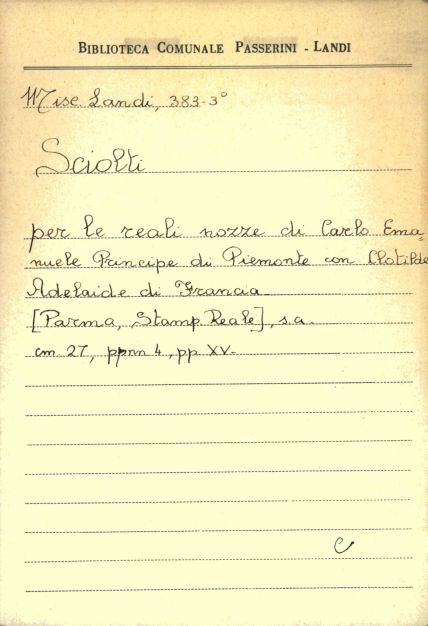 BIBLIOTECA COMUNALE PASSERINI - LANDI
Misc. Landi, 383-3°
Sciolti
per le reali nozze di Carlo Ema-
nuele Principe di Piemonte con Clotilde
Adelaide di Francia
[Parma, Stamp. Reale], s.a.
cm. 27, ppnn 4, pp. XV-
C